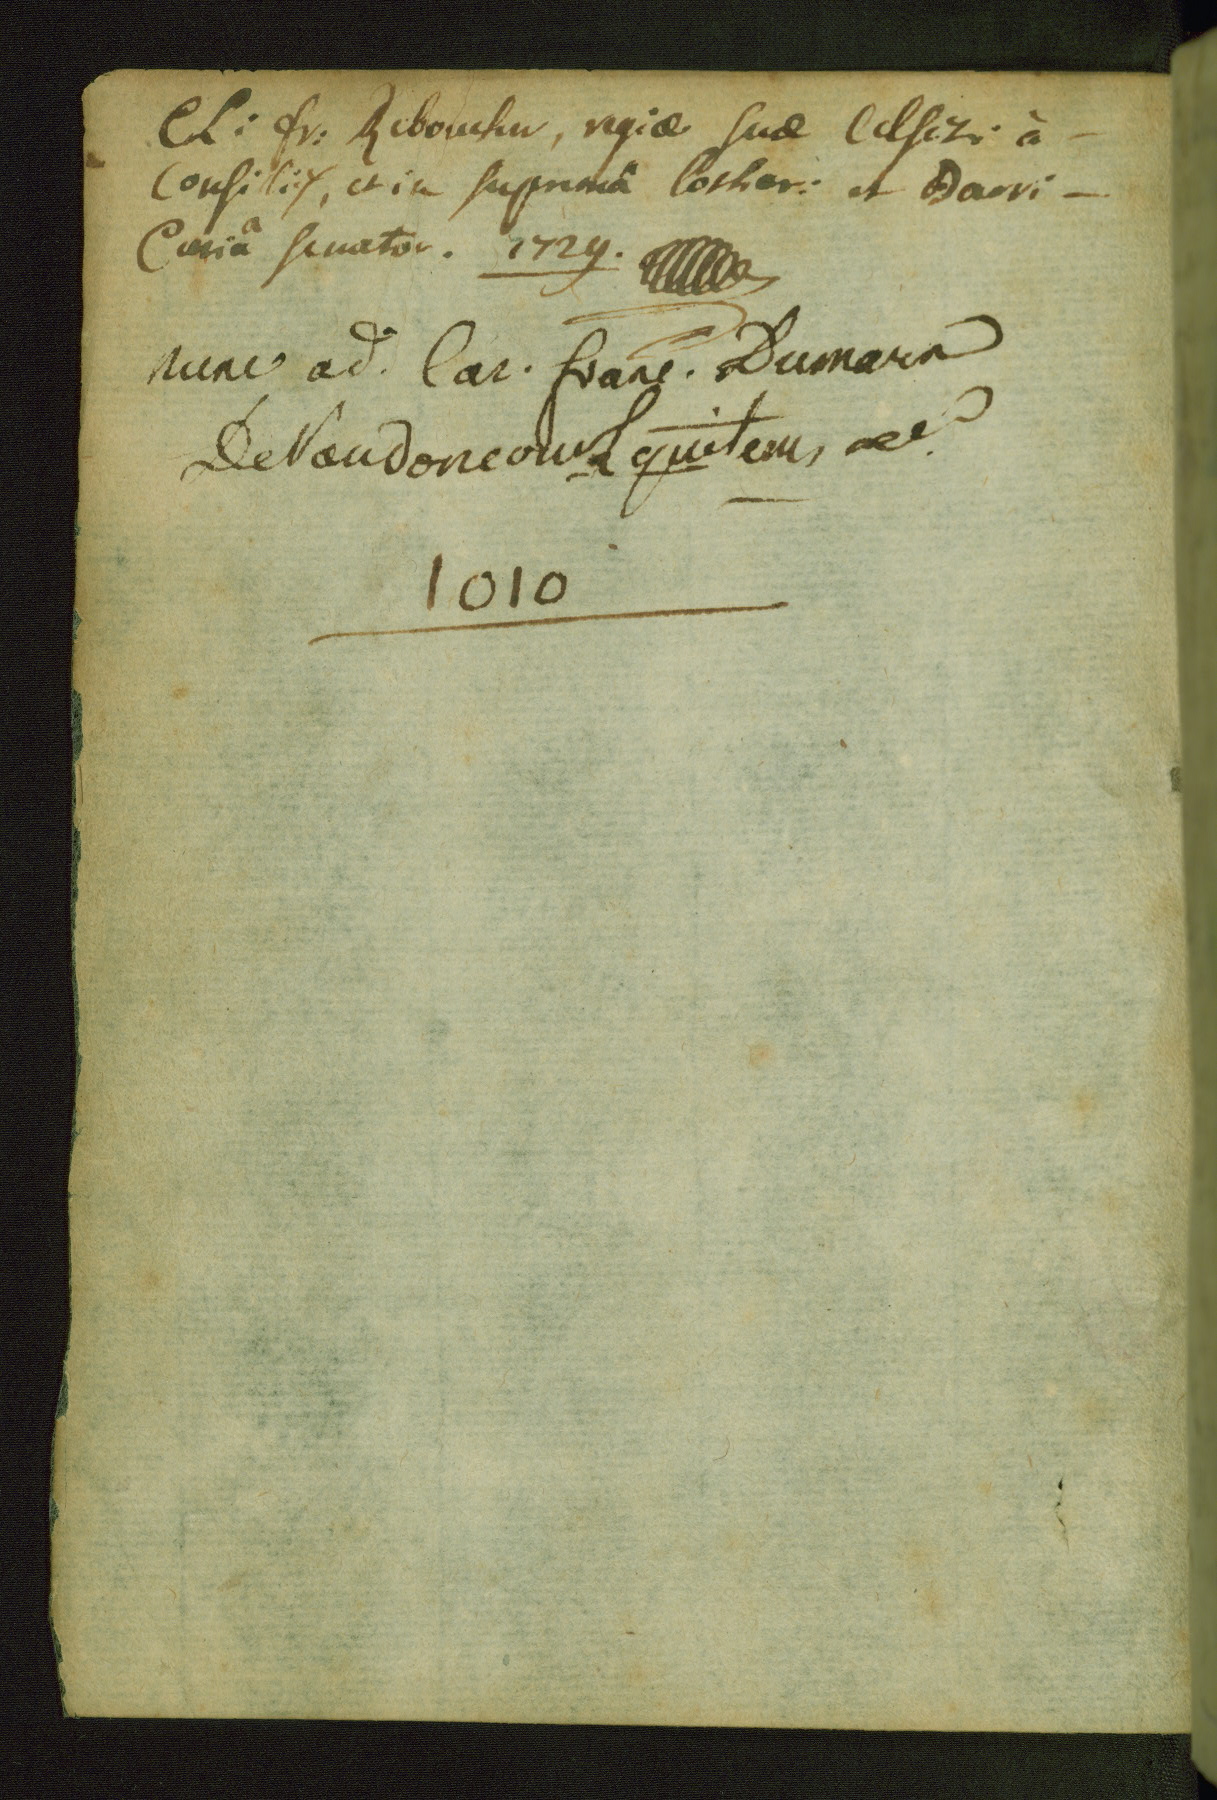 Cl: fr: Reboucher, regiæ suæ Celsit: à -
Consilijs, et in supremâ Lothar: et Barri -
Curiâ senator. 1729.
nunc ad. Car. franc. Dumarn
De Vaudoncourt Equitem, &c.
1010